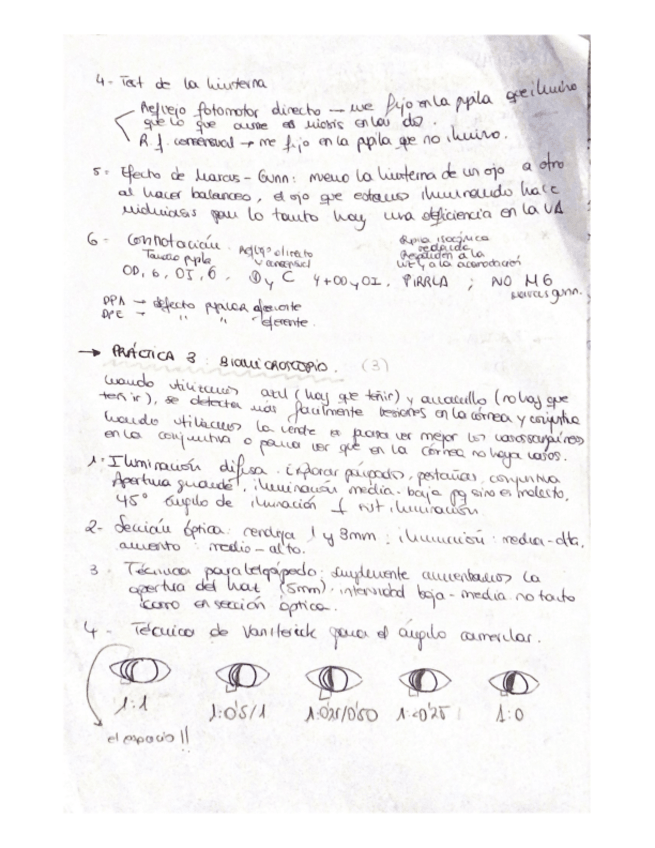 4- Test de la linterna
Reflejo fotomotor directo → me fijo en la pupila que ilumino
que lo que ocurre es miosis en los dos.
R.f. consensual → me fijo en la pupila que no ilumino.
5- Efecto de Marcus-Gunn: muevo la linterna de un ojo a otro
al hacer balanceo, el ojo que estamos iluminando hace
midriasis por lo tanto hay una deficiencia en la VA
6- Connotación.
Tamaño pupila
Reflejo directo
y consensual
Pupila isocórica
redonda
Responden a la
luz y a la acomodación
OD, 6, OI, 6. D y C 4+OD y OI. PIRRLA ; NO MG
Marcus gunn.
DPA → defecto pupilar aferente
DPE → " " eferente.
→ PRÁCTICA 3: BIOMICROSCOPIO. (3)
Cuando utilizamos azul (hay que teñir) y amarillo (no hay que
teñir), se detecta más facilmente lesiones en la córnea y conjuntiva
Cuando utilizamos la verde es para ver mejor los vasos sanguíneos
en la conjuntiva o para ver que en la córnea no haya vasos.
1- Iluminación difusa. explorar párpados, pestañas, conjuntiva
Apertura grande, iluminación media-baja pq sino es molesto,
45° ángulo de iluminación iluminación.
2- Sección óptica: rendija 1 y 3mm; iluminación: media-alta,
aumento: medio-alto.
3. Técnica paralelepípedo: simplemente aumentamos la
apertura del haz (5mm). intensidad baja-media. no tanto
como en sección óptica.
4- Técnica de Van Herick para el ángulo camerular.
1:1 1:0'5/1 1:0'25/0'50 1:<0'25 1:0
el espacio!!